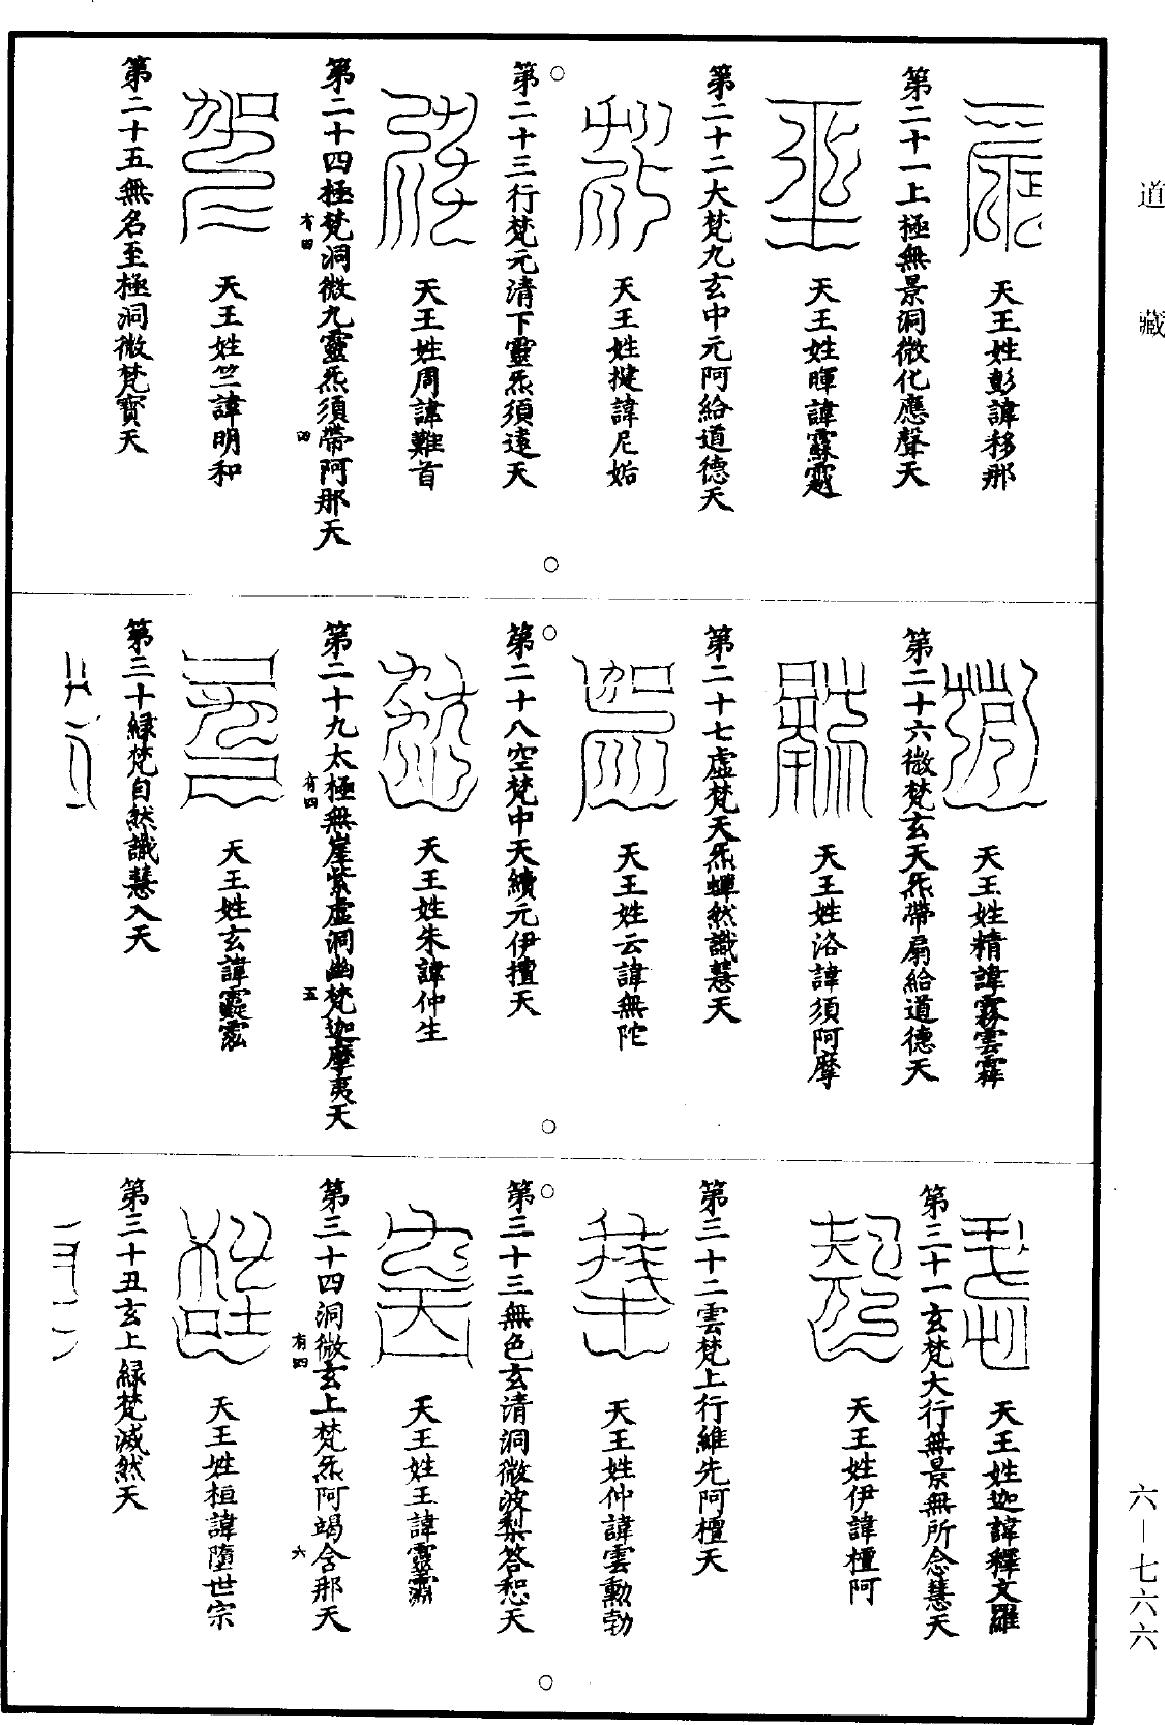 道藏
天王姓彭諱移那
第二十一上極無景洞微化應聲天
天王姓暉諱霖
第二十二大梵九玄中元阿給道德天
天王姓揵諱尼姤
第二十三行梵元清下靈炁須遠天
天王姓周諱難首
第二十四極梵洞微九靈炁須帶阿那天
有四
四
天王姓竺諱明和
第二十五無名至極洞微梵寶天
天王姓精諱霧雲霖
第二十六微梵玄天炁帶扇給道德天
天王姓洛諱須阿摩
第二十七虛梵天炁蟬然識慧天
天王姓云諱無陀
第二十八空梵中天續元伊檀天
天王姓朱諱仲生
第二十九太極無崖紫虛洞幽梵迦摩夷天
有四
五
天王姓玄諱
第三十綠梵自然識慧入天
天王姓迦諱釋文羅
第三十一玄梵大行無景無所念慧天
天王姓伊諱檀阿
第三十二雲梵上行維先阿檀天
天王姓仲諱雲勳勃
第三十三無色玄清洞微波梨答惒天
天王姓王諱靈
第三十四洞微玄上梵炁阿竭含那天
有四
六
天王姓桓諱墮世宗
第三十五玄上綠梵滅然天
六—七六六